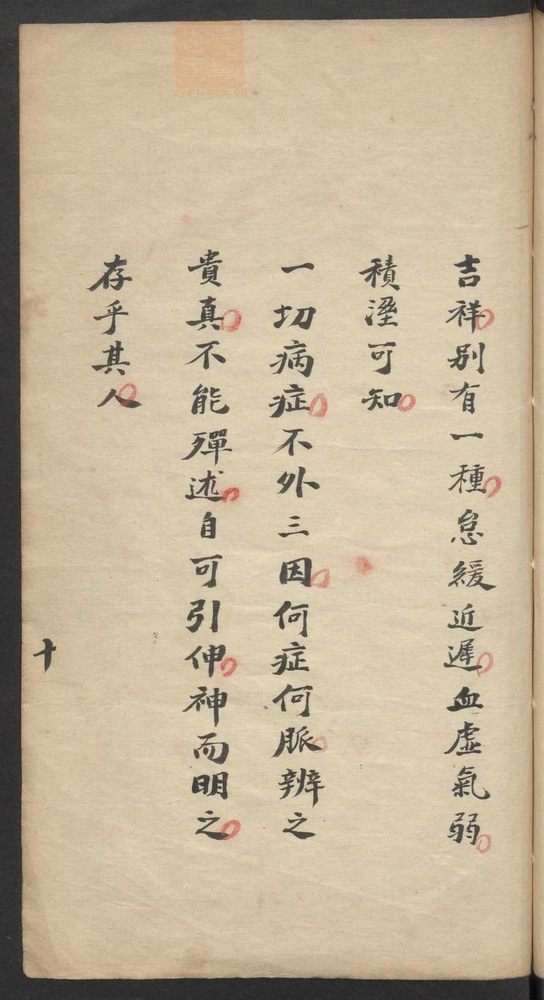 吉祥別有一種怠緩近遲血虛氣弱
積溼可知
一切病症不外三因何症何脈辨之
貴真不能殫述自可引伸神而明之
存乎其人
十